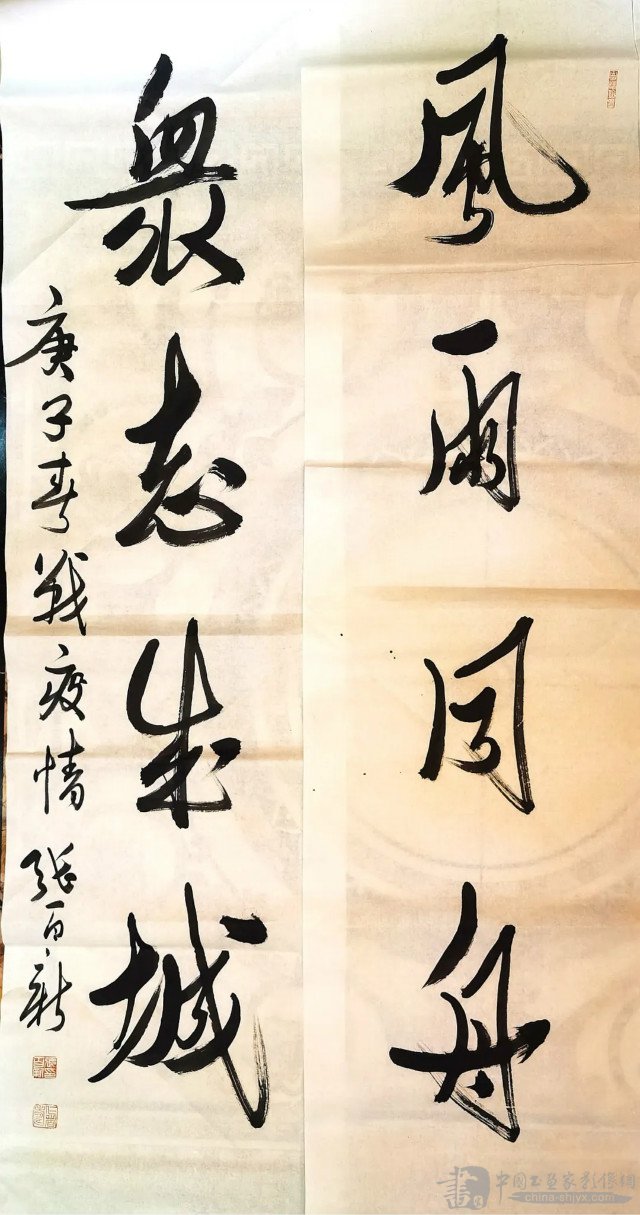 風雨同舟
衆志成城
庚子春戰疫情 張百新
中國书画家影像網
www.china-shjyx.com